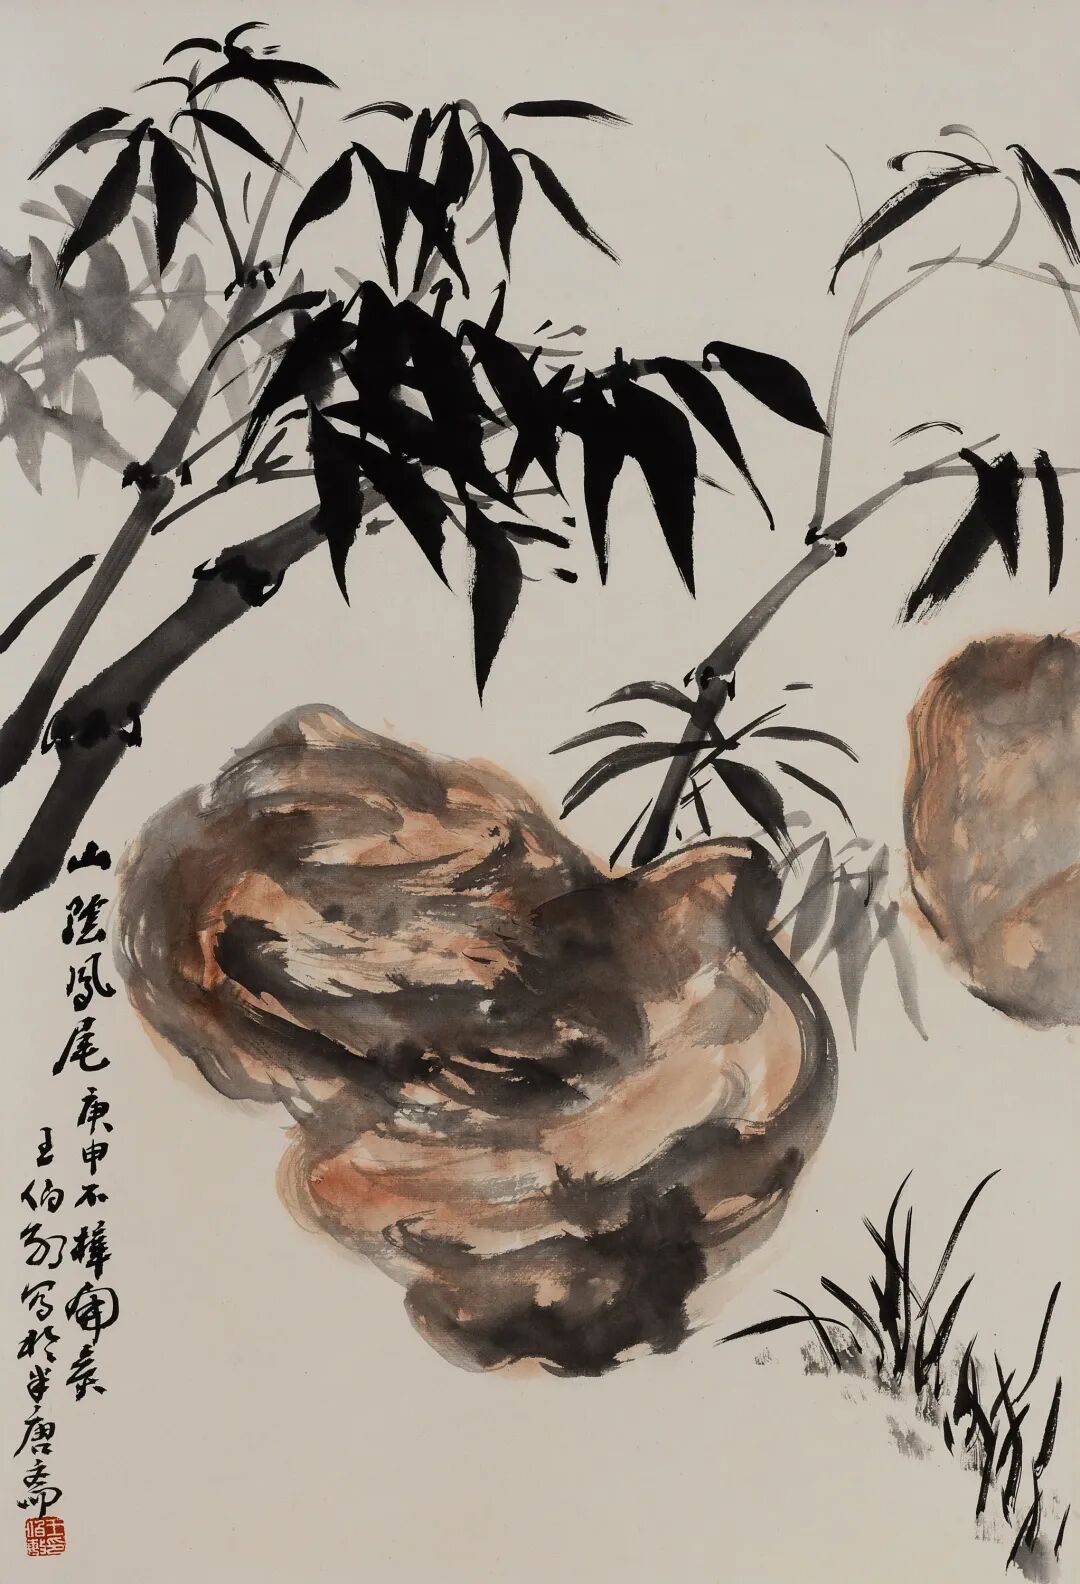 山陰鳳尾 庚申
王伯敏寫於半唐齋
王印
伯敏